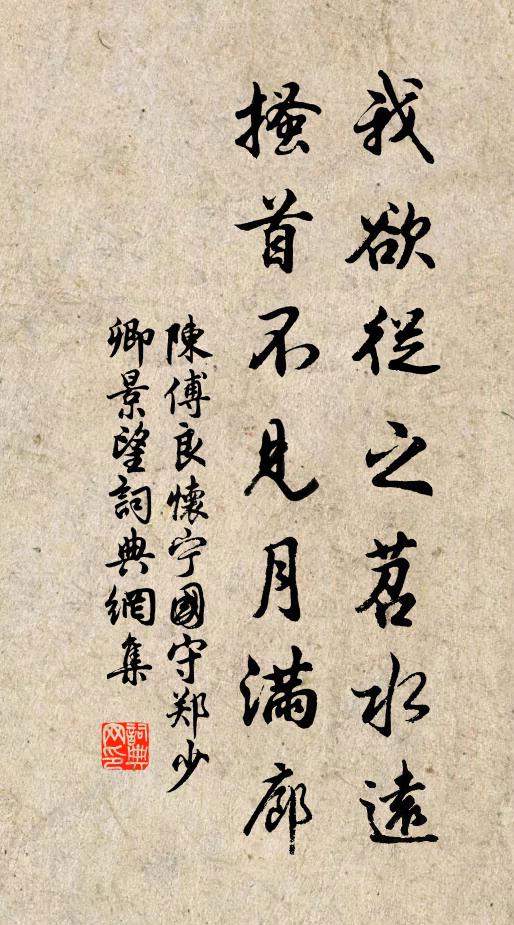 我欲從之苕水遠
搔首不見月滿廊
陳傅良懷宁國守郑少
卿景望詞典網集
詞典
网印